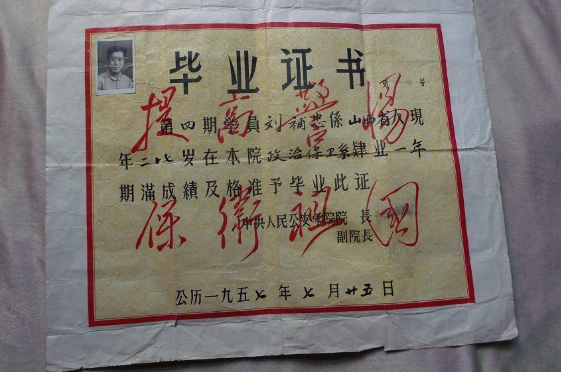 毕业证书
号
提高警惕
第四期学員刘補忠係山西省人現
年二七岁在本院政治保卫系肄业一年
期滿成績及格准予毕业此证
保衛祖國
中央人民公安学院院長
副院長
公历一九五七年七月廿五日